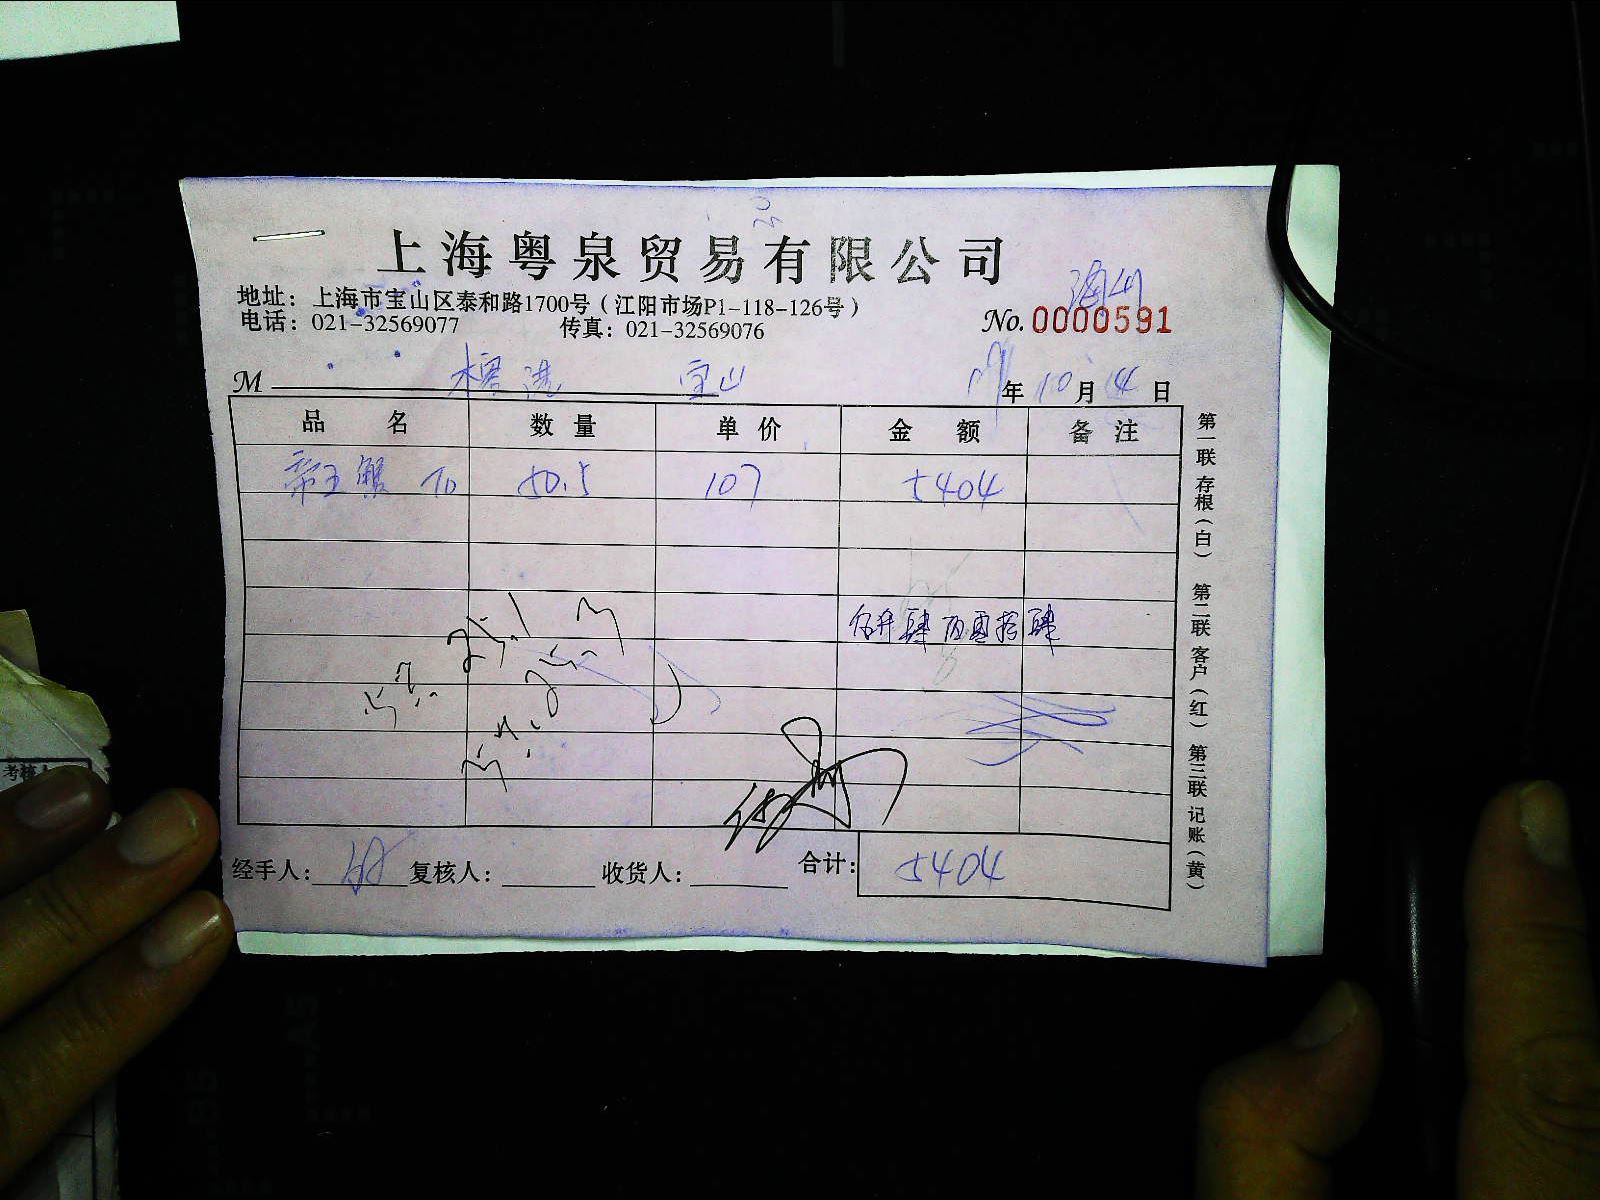 上海粤泉贸易有限公司
地址：上海市宝山区泰和路1700号（江阳市场P1-118-126号）
电话：021-32569077 传真：021-32569076
No. 0000591
M 宝山 年 10 月 14 日
品 名 数 量 单 价 金 额 备 注
帝王蟹 50.5 107 5404
经手人： 复核人： 收货人： 合计： 5404
第一联 存根（白） 第二联 客户（红） 第三联 记账（黄）